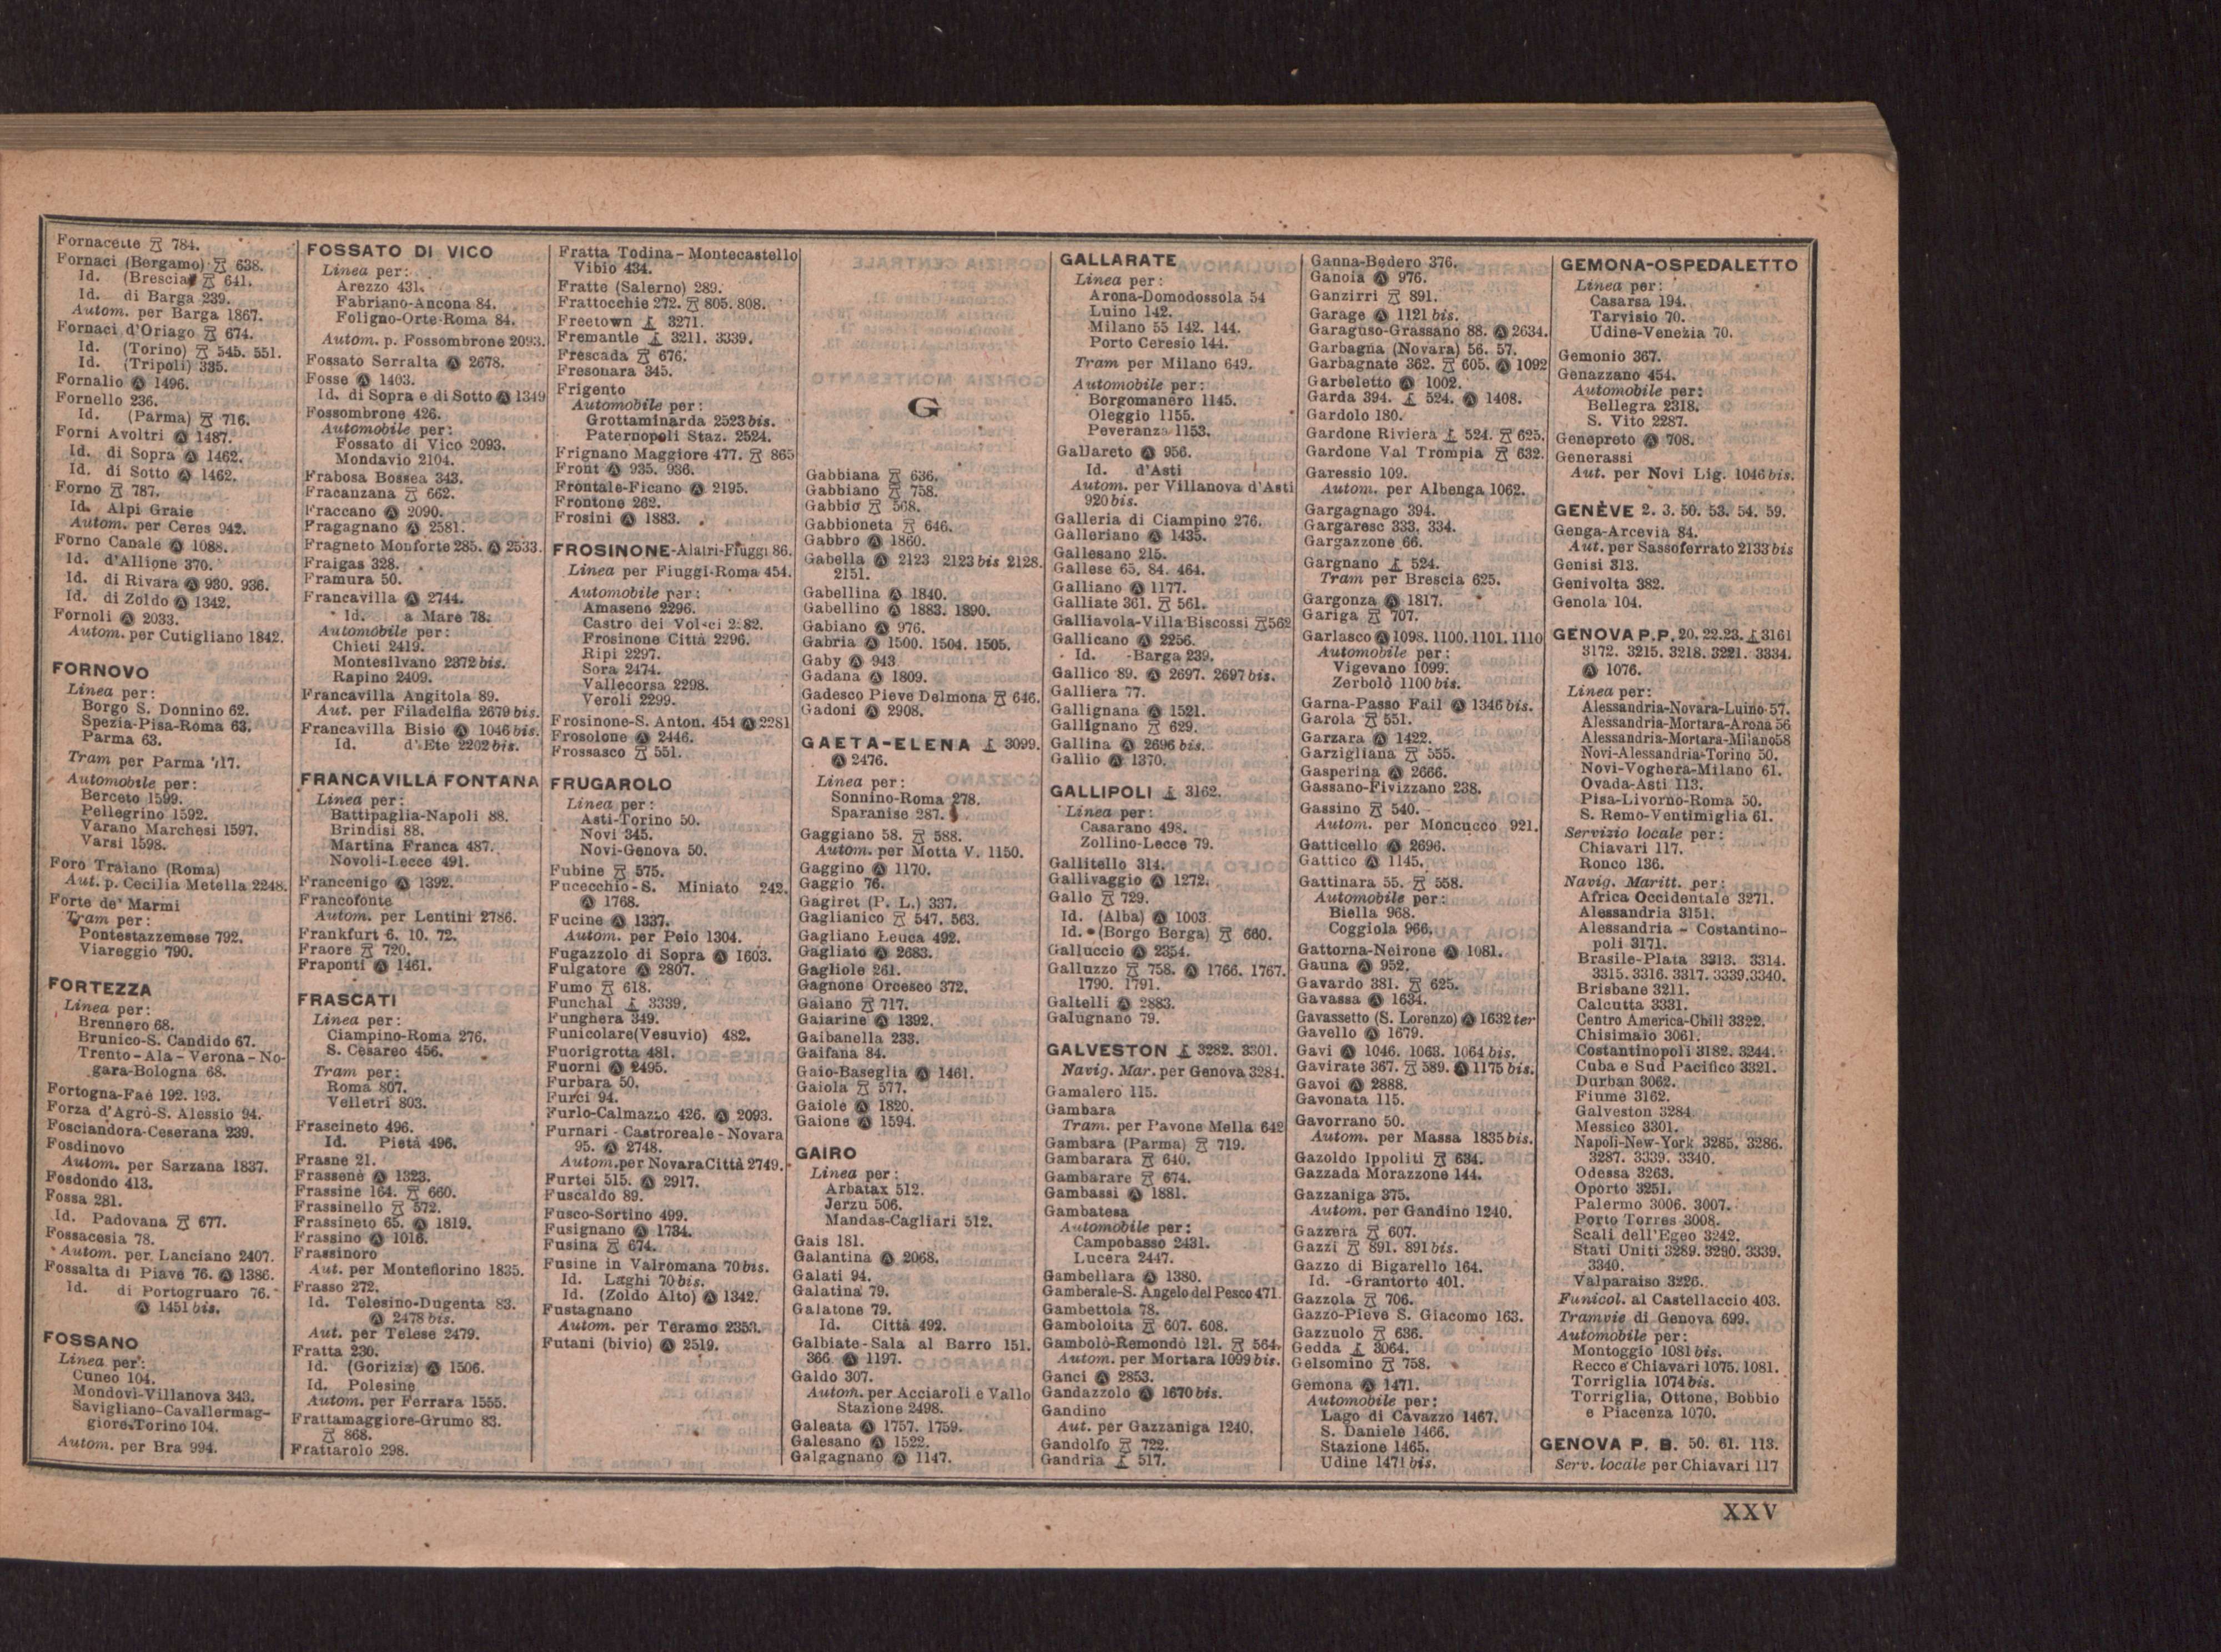 Fornacette 784.
Fornaci (Bergamo) 638.
Id. (Brescia) 641.
Id. di Barga 239.
Autom. per Barga 1867.
Fornaci d'Oriago 674.
Id. (Torino) 545. 551.
Id. (Tripoli) 335.
Fornalio Ⓐ 1496.
Fornello 236.
Id. (Parma) 716.
Forni Avoltri Ⓐ 1487.
Id. di Sopra Ⓐ 1462.
Id. di Sotto Ⓐ 1462.
Forno 787.
Id. Alpi Graie
Autom. per Ceres 942.
Forno Canale Ⓐ 1088.
Id. d'Allione 370.
Id. di Rivara Ⓐ 930. 936.
Id. di Zoldo Ⓐ 1342.
Fornoli Ⓐ 2033.
Autom. per Cutigliano 1842.
FORNOVO
Linea per:
Borgo S. Donnino 62.
Spezia-Pisa-Roma 63.
Parma 63.
Tram per Parma 717.
Automobile per:
Berceto 1599.
Pellegrino 1592.
Varano Marchesi 1597.
Varsi 1598.
Foro Traiano (Roma)
Aut. p. Cecilia Metella 2248.
Forte de' Marmi
Tram per:
Pontestazzemese 792.
Viareggio 790.
FORTEZZA
Linea per:
Brennero 68.
Brunico-S. Candido 67.
Trento-Ala-Verona-No-
gara-Bologna 68.
Fortogna-Faè 192. 193.
Forza d'Agrò-S. Alessio 94.
Fosciandora-Ceserana 239.
Fosdinovo
Autom. per Sarzana 1837.
Fosdondo 413.
Fossa 281.
Id. Padovana 677.
Fossacesia 78.
Autom. per Lanciano 2407.
Fossalta di Piave 76. Ⓐ 1386.
Id. di Portogruaro 76.
Ⓐ 1451 bis.
FOSSANO
Linea per:
Cuneo 104.
Mondovì-Villanova 343.
Savigliano-Cavallermag-
giore-Torino 104.
Autom. per Bra 994.
FOSSATO DI VICO
Linea per:
Arezzo 431.
Fabriano-Ancona 84.
Foligno-Orte-Roma 84.
Autom. p. Fossombrone 2093.
Fossato Serralta Ⓐ 2678.
Fosse Ⓐ 1403.
Id. di Sopra e di Sotto Ⓐ 1349
Fossombrone 426.
Automobile per:
Fossato di Vico 2093.
Mondavio 2104.
Frabosa Bossea 343.
Fracanzana 662.
Fraccano Ⓐ 2090.
Fragagnano Ⓐ 2581.
Fragneto Monforte 285. Ⓐ 2533.
Fraigas 328.
Framura 50.
Francavilla Ⓐ 2744.
Id. a Mare 78.
Automobile per:
Chieti 2419.
Montesilvano 2372 bis.
Rapino 2409.
Francavilla Angitola 89.
Aut. per Filadelfia 2679 bis.
Francavilla Bisio Ⓐ 1046 bis.
Id. d'Ete 2202 bis.
FRANCAVILLA FONTANA
Linea per:
Battipaglia-Napoli 88.
Brindisi 88.
Martina Franca 487.
Novoli-Lecce 491.
Francenigo Ⓐ 1392.
Francofonte
Autom. per Lentini 2786.
Frankfurt 6. 10. 72.
Fraore 720.
Fraponti Ⓐ 1461.
FRASCATI
Linea per:
Ciampino-Roma 276.
S. Cesareo 456.
Tram per:
Roma 807.
Velletri 803.
Frascineto 496.
Id. Pietà 496.
Frasne 21.
Frassenè Ⓐ 1323.
Frassine 164. 660.
Frassinello 572.
Frassineto 65. Ⓐ 1819.
Frassino Ⓐ 1016.
Frassinoro
Aut. per Montefiorino 1835.
Frasso 272.
Id. Telesino-Dugenta 83.
Ⓐ 2478 bis.
Aut. per Telese 2479.
Fratta 230.
Id. (Gorizia) Ⓐ 1506.
Id. Polesine
Autom. per Ferrara 1555.
Frattamaggiore-Grumo 83.
868.
Frattarolo 298.
Fratta Todina-Montecastello
Vibio 434.
Fratte (Salerno) 289.
Frattocchie 272. 805. 808.
Freetown 3271.
Fremantle 3211. 3339.
Frescada 676.
Fresonara 345.
Frigento
Automobile per:
Grottaminarda 2523 bis.
Paternopoli Staz. 2524.
Frignano Maggiore 477. 865
Front Ⓐ 935. 936.
Frontale-Ficano Ⓐ 2195.
Frontone 262.
Frosini Ⓐ 1883.
FROSINONE-Alatri-Fiuggi 86.
Linea per Fiuggi-Roma 454.
Automobile per:
Amaseno 2296.
Castro dei Volsci 2282.
Frosinone Città 2296.
Ripi 2297.
Sora 2474.
Vallecorsa 2298.
Veroli 2299.
Frosinone-S. Anton. 454 Ⓐ 2281
Frosolone Ⓐ 2446.
Frossasco 551.
FRUGAROLO
Linea per:
Asti-Torino 50.
Novi 345.
Novi-Genova 50.
Fubine 575.
Fucecchio-S. Miniato 242.
Ⓐ 1768.
Fucine Ⓐ 1337.
Autom. per Peio 1304.
Fugazzolo di Sopra Ⓐ 1603.
Fulgatore Ⓐ 2807.
Fumo 618.
Funchal 3339.
Funghera 349.
Funicolare(Vesuvio) 482.
Fuorigrotta 481.
Fuorni Ⓐ 2495.
Furbara 50.
Furci 94.
Furlo-Calmazzo 426. Ⓐ 2093.
Furnari-Castroreale-Novara
95. Ⓐ 2748.
Autom. per Novara Città 2749.
Furtei 515. Ⓐ 2917.
Fuscaldo 89.
Fusco-Sortino 499.
Fusignano Ⓐ 1734.
Fusina 674.
Fusine in Valromana 70 bis.
Id. Laghi 70 bis.
Id. (Zoldo Alto) Ⓐ 1342.
Fustagnano
Autom. per Teramo 2353.
Futani (bivio) Ⓐ 2519.
G
Gabbiana 636.
Gabbiano 758.
Gabbio 568.
Gabbioneta 646.
Gabbro Ⓐ 1860.
Gabella Ⓐ 2123 2123 bis 2128.
2151.
Gabellina Ⓐ 1840.
Gabellino Ⓐ 1883. 1890.
Gabiano Ⓐ 976.
Gabria Ⓐ 1500. 1504. 1505.
Gaby Ⓐ 943.
Gadana Ⓐ 1809.
Gadesco Pieve Delmona 646.
Gadoni Ⓐ 2908.
GAETA-ELENA 3099.
Ⓐ 2476.
Linea per:
Sonnino-Roma 278.
Sparanise 287.
Gaggiano 58. 588.
Autom. per Motta V. 1150.
Gaggino Ⓐ 1170.
Gaggio 76.
Gagiret (P. L.) 337.
Gaglianico 547. 563.
Gagliano Leuca 492.
Gagliato Ⓐ 2683.
Gagliole 261.
Gagnone Orcesco 372.
Gaiano 717.
Gaiarine Ⓐ 1392.
Gaibanella 233.
Gaifana 84.
Gaio-Baseglia Ⓐ 1461.
Gaiola 577.
Gaiole Ⓐ 1820.
Gaione Ⓐ 1594.
GAIRO
Linea per:
Arbatax 512.
Jerzu 506.
Mandas-Cagliari 512.
Gais 181.
Galantina Ⓐ 2068.
Galati 94.
Galatina 79.
Galatone 79.
Id. Città 492.
Galbiate-Sala al Barro 151.
366. Ⓐ 1197.
Galdo 307.
Autom. per Acciaroli e Vallo
Stazione 2498.
Galeata Ⓐ 1757. 1759.
Galesano Ⓐ 1522.
Galgagnano Ⓐ 1147.
GALLARATE
Linea per:
Arona-Domodossola 54
Luino 142.
Milano 55 142. 144.
Porto Ceresio 144.
Tram per Milano 649.
Automobile per:
Borgomanero 1145.
Oleggio 1155.
Peveranza 1153.
Gallareto Ⓐ 956.
Id. d'Asti
Autom. per Villanova d'Asti
920 bis.
Galleria di Ciampino 276.
Galleriano Ⓐ 1435.
Gallesano 215.
Gallese 65. 84. 464.
Galliano Ⓐ 1177.
Galliate 361. 561.
Galliavola-Villa Biscossi 562
Gallicano Ⓐ 2256.
Id. -Barga 239.
Gallico 89. Ⓐ 2697. 2697 bis.
Galliera 77.
Gallignana Ⓐ 1521.
Gallignano 629.
Gallina Ⓐ 2696 bis.
Gallio Ⓐ 1370.
GALLIPOLI 3162.
Linea per:
Casarano 498.
Zollino-Lecce 79.
Gallitello 314.
Gallivaggio Ⓐ 1272.
Gallo 729.
Id. (Alba) Ⓐ 1003.
Id. (Borgo Berga) 660.
Galluccio Ⓐ 2354.
Galluzzo 758. Ⓐ 1766. 1767.
1790. 1791.
Galtelli Ⓐ 2883.
Galugnano 79.
GALVESTON 3282. 3301.
Navig. Mar. per Genova 3284.
Gamalero 115.
Gambara
Tram. per Pavone Mella 642
Gambara (Parma) 719.
Gambarara 640.
Gambarare 674.
Gambassi Ⓐ 1881.
Gambatesa
Automobile per:
Campobasso 2431.
Lucera 2447.
Gambellara Ⓐ 1380.
Gamberale-S. Angelo del Pesco 471.
Gambettola 78.
Gamboloita 607. 608.
Gambolò-Remondò 121. 564.
Autom. per Mortara 1099 bis.
Ganci Ⓐ 2853.
Gandazzolo Ⓐ 1670 bis.
Gandino
Aut. per Gazzaniga 1240.
Gandolfo 722.
Gandria 517.
Ganna-Bedero 376.
Ganoia Ⓐ 976.
Ganzirri 891.
Garage Ⓐ 1121 bis.
Garaguso-Grassano 88. Ⓐ 2634.
Garbagna (Novara) 56. 57.
Garbagnate 362. 605. Ⓐ 1092
Garbeletto Ⓐ 1002.
Garda 394. 524. Ⓐ 1408.
Gardolo 180.
Gardone Riviera 524. 625.
Gardone Val Trompia 632.
Garessio 109.
Autom. per Albenga 1062.
Gargagnago 394.
Gargaresc 333. 334.
Gargazzone 66.
Gargnano 524.
Tram per Brescia 625.
Gargonza Ⓐ 1817.
Gariga 707.
Garlasco Ⓐ 1098. 1100. 1101. 1110
Automobile per:
Vigevano 1099.
Zerbolò 1100 bis.
Garna-Passo Fail Ⓐ 1346 bis.
Garola 551.
Garzara Ⓐ 1422.
Garzigliana 555.
Gasperina Ⓐ 2666.
Gassano-Fivizzano 238.
Gassino 540.
Autom. per Moncucco 921.
Gatticello Ⓐ 2696.
Gattico Ⓐ 1145.
Gattinara 55. 558.
Automobile per:
Biella 968.
Coggiola 966.
Gattorna-Neirone Ⓐ 1081.
Gauna Ⓐ 952.
Gavardo 381. 625.
Gavassa Ⓐ 1634.
Gavassetto (S. Lorenzo) Ⓐ 1632 ter
Gavello Ⓐ 1679.
Gavi Ⓐ 1046. 1063. 1064 bis.
Gavirate 367. 589. Ⓐ 1175 bis.
Gavoi Ⓐ 2888.
Gavonata 115.
Gavorrano 50.
Autom. per Massa 1835 bis.
Gazoldo Ippoliti 634.
Gazzada Morazzone 144.
Gazzaniga 375.
Autom. per Gandino 1240.
Gazzera 607.
Gazzi 891. 891 bis.
Gazzo di Bigarello 164.
Id. -Grantorto 401.
Gazzola 706.
Gazzo-Pieve S. Giacomo 163.
Gazzuolo 636.
Gedda 3064.
Gelsomino 758.
Gemona Ⓐ 1471.
Automobile per:
Lago di Cavazzo 1467.
S. Daniele 1466.
Stazione 1465.
Udine 1471 bis.
GEMONA-OSPEDALETTO
Linea per:
Casarsa 194.
Tarvisio 70.
Udine-Venezia 70.
Gemonio 367.
Genazzano 454.
Automobile per:
Bellegra 2318.
S. Vito 2287.
Genepreto Ⓐ 708.
Generassi
Aut. per Novi Lig. 1046 bis.
GENÈVE 2. 3. 50. 53. 54. 59.
Genga-Arcevia 84.
Aut. per Sassoferrato 2133 bis
Genisi 313.
Genivolta 382.
Genola 104.
GENOVA P.P. 20. 22. 23. 3161
3172. 3215. 3218. 3221. 3334.
Ⓐ 1076.
Linea per:
Alessandria-Novara-Luino 57.
Alessandria-Mortara-Arona 56
Alessandria-Mortara-Milano 58
Novi-Alessandria-Torino 50.
Novi-Voghera-Milano 61.
Ovada-Asti 113.
Pisa-Livorno-Roma 50.
S. Remo-Ventimiglia 61.
Servizio locale per:
Chiavari 117.
Ronco 136.
Navig. Maritt. per:
Africa Occidentale 3271.
Alessandria 3151.
Alessandria - Costantino-
poli 3171.
Brasile-Plata 3313. 3314.
3315. 3316. 3317. 3339. 3340.
Brisbane 3211.
Calcutta 3331.
Centro America-Chili 3322.
Chisimaio 3061.
Costantinopoli 3182. 3244.
Cuba e Sud Pacifico 3321.
Durban 3062.
Fiume 3162.
Galveston 3284.
Messico 3301.
Napoli-New-York 3285. 3286.
3287. 3339. 3340.
Odessa 3263.
Oporto 3251.
Palermo 3006. 3007.
Porto Torres 3008.
Scali dell'Egeo 3242.
Stati Uniti 3289. 3290. 3339.
3340.
Valparaiso 3226.
Funicol. al Castellaccio 403.
Tramvie di Genova 699.
Automobile per:
Montoggio 1081 bis.
Recco e Chiavari 1075. 1081.
Torriglia 1074 bis.
Torriglia, Ottone, Bobbio
e Piacenza 1070.
GENOVA P. B. 50. 61. 113.
Serv. locale per Chiavari 117
XXV